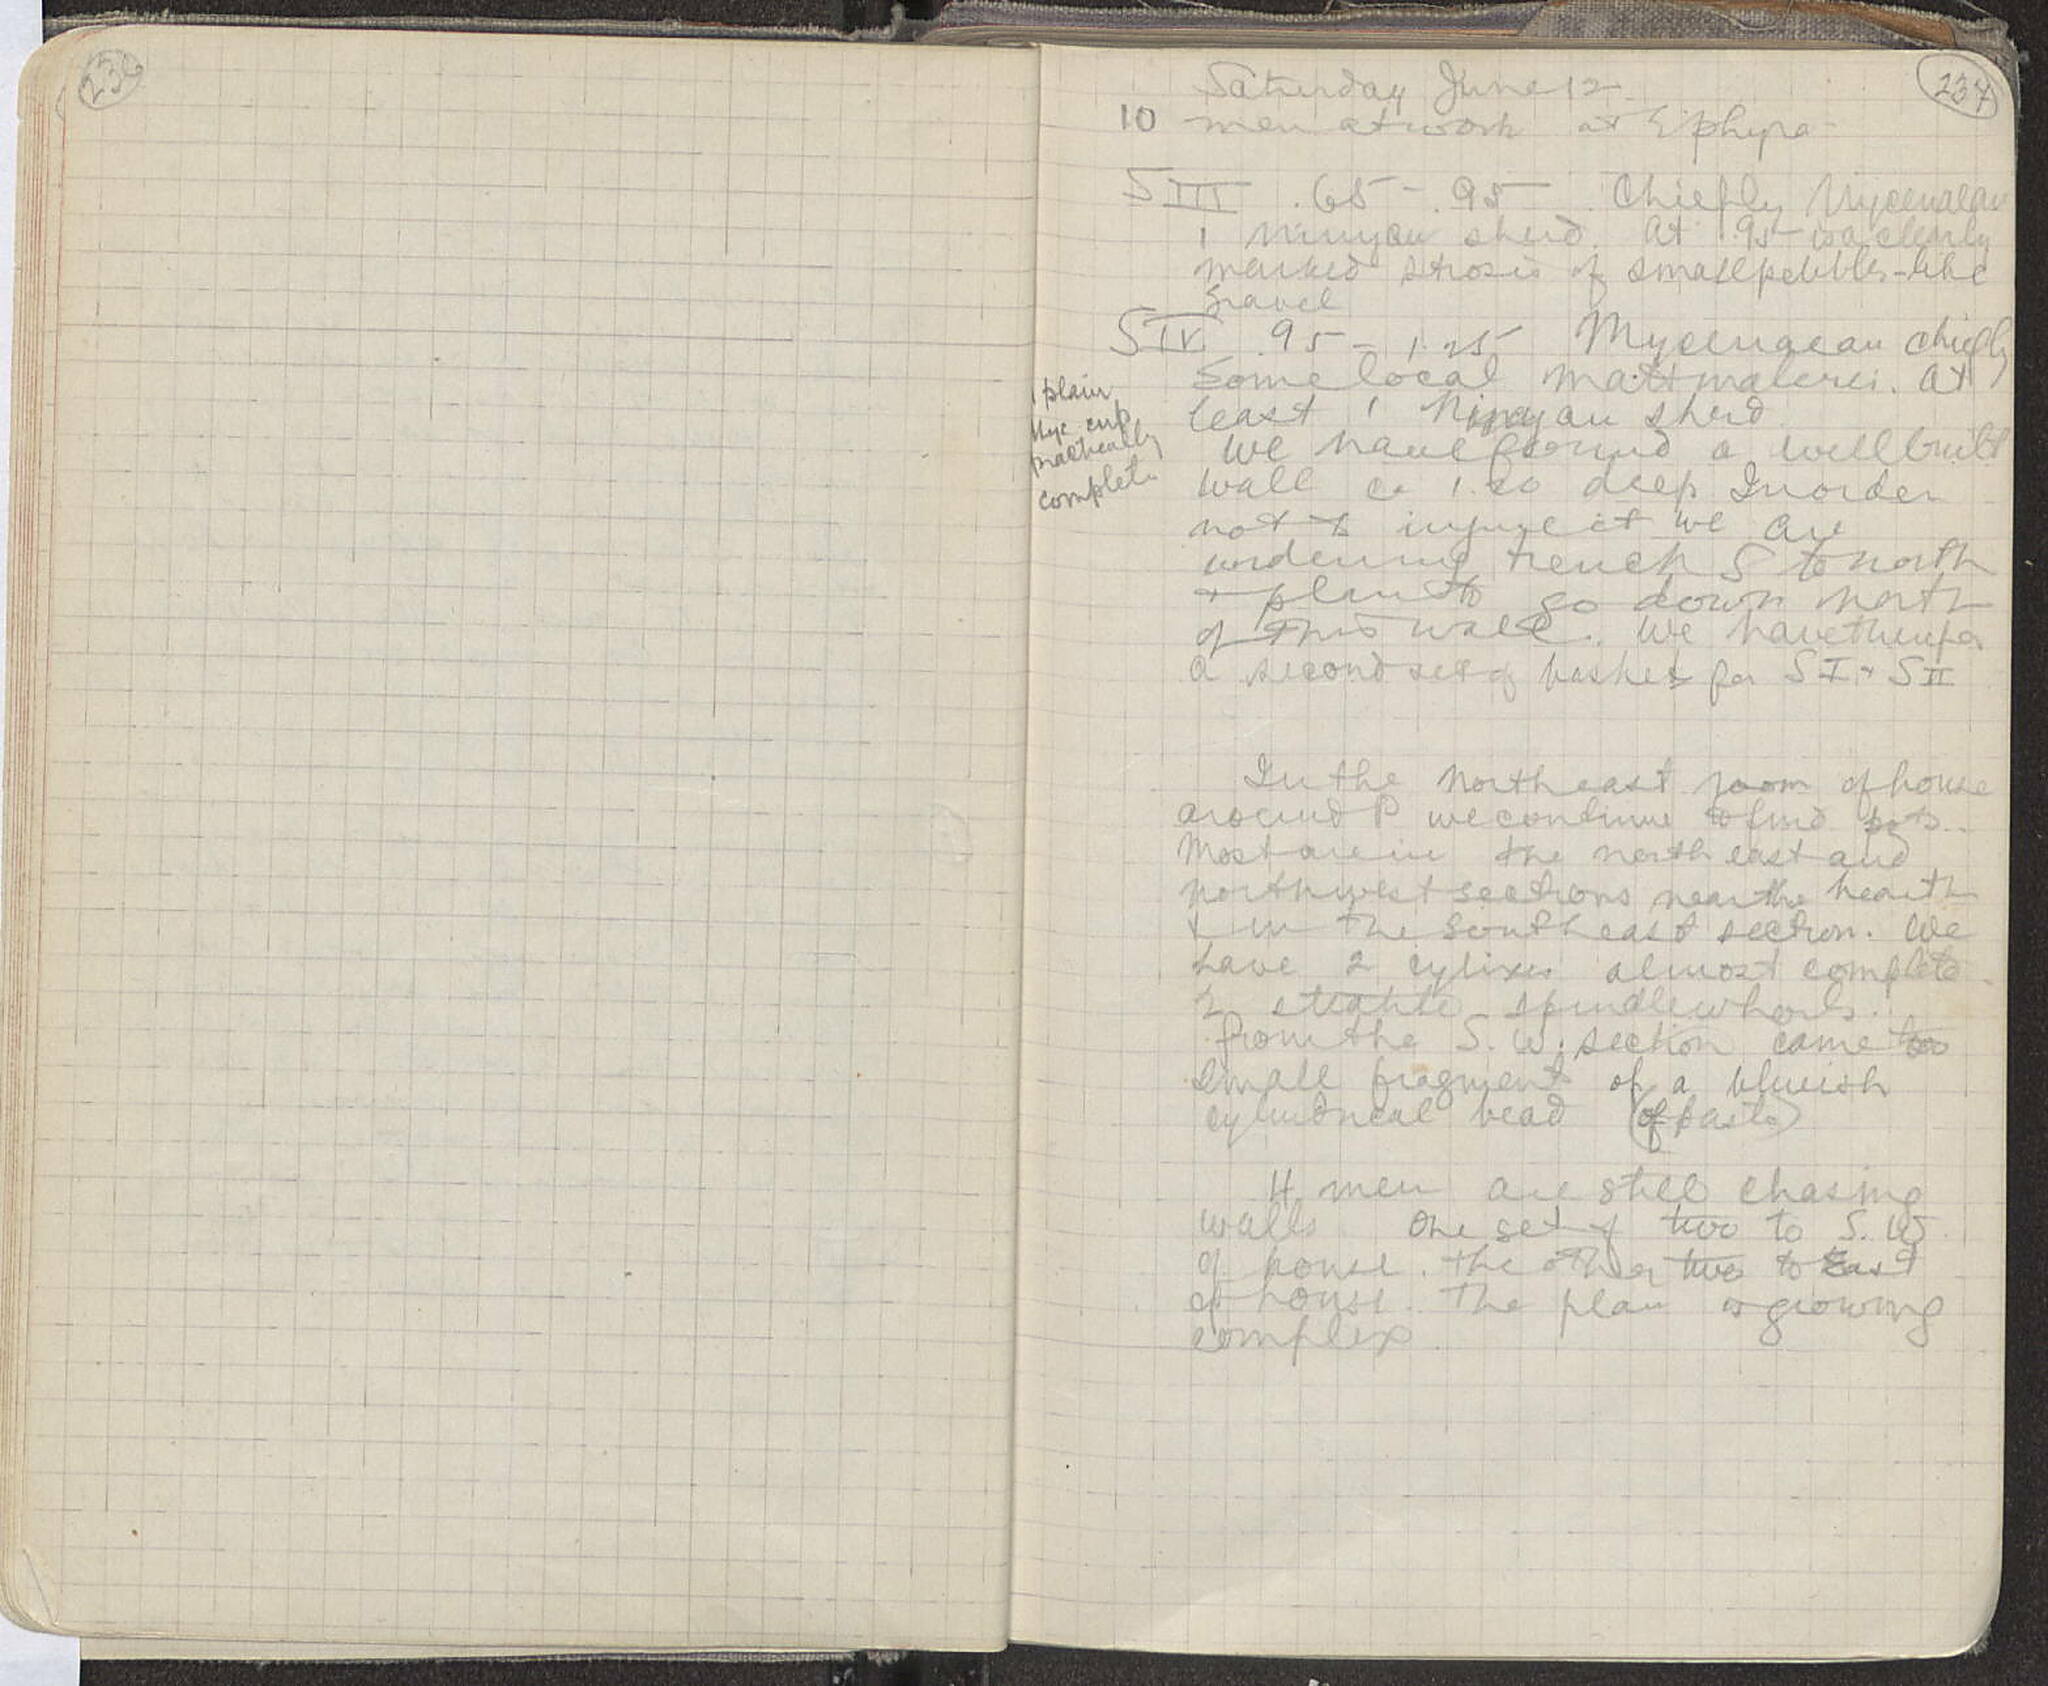 236
237
Saturday June 12
10 men at work at Ephyra -
S III .65 - .95 Chiefly Mycenaean
1 Minyan sherd. At .95 is a clearly
marked strosis of small pebbles - like
gravel
S IV .95 - 1.25 Mycenaean chiefly
Some local mattmalerei. At
least 1 Minyan sherd
1 plain
Myc cup
practically
complete
We have found a well built
wall ca 1.20 deep In order
not to injure it we are
widening trench S to north
+ plan to go down north
of this wall. We have therefor
a second set of baskets for S I + S II
In the northeast room of house
around P we continue to find pots.
Most are in the north east and
northwest sections near the hearth
+ in the southeast section. We
have 2 cylixes almost complete
2 steatite spindlewhorls.
From the S. W. section came two
small fragments of a blueish
cylindrical bead (of paste)
4 men are still chasing
walls One set of two to S. W.
of house. The other two to East
of house. The plan is growing
complex.